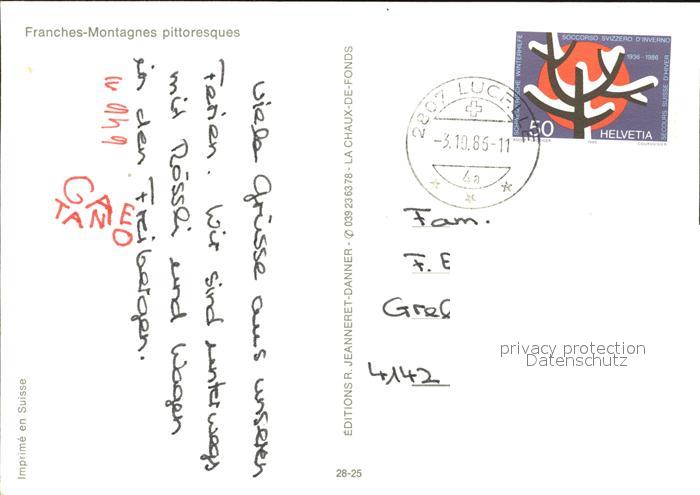 Franches-Montagnes pittoresques
viele Grüsse aus unseren
Ferien. Wir sind unterwegs
mit Rössli und Wagen
in den Freibergen.
Imprimé en Suisse
ÉDITIONS R. JEANNERET-DANNER - ✆ 039 236378 - LA CHAUX-DE-FONDS
28-25
2807 LUCELLE
-3.10.86-11
4a
SCHWEIZERISCHE WINTERHILFE
SOCCORSO SVIZZERO D'INVERNO
1936-1986
SECOURS SUISSE D'HIVER
50
HELVETIA
1986
COURVOISIER
Fam.
F. E
Grel
4142
privacy protection
Datenschutz